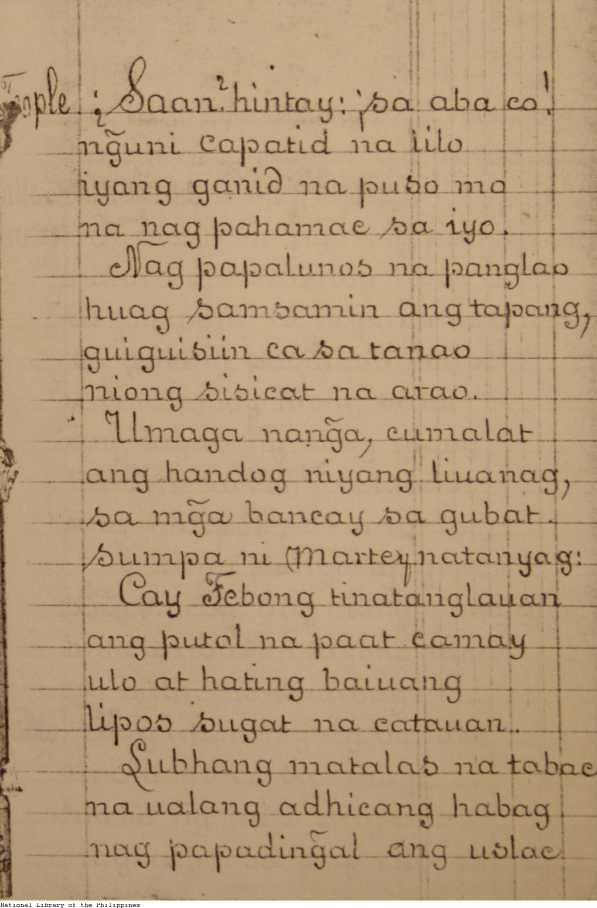 ¿Saan? hintay: ¡sa aba co!
ng̃uni capatid na lilo
iyang ganid na puso mo
na nag pahamac sa iyo.
Nag papalunos na panglao
huag samsamin ang tapang,
guiguisiin ca sa tanao
niong sisicat na arao.
Umaga nang̃a, cumalat
ang handog niyang liuanag,
sa mg̃a bancay sa gubat.
sumpa ni Martey natanyag:
Cay Febong tinatanglauan
ang putol na paat camay
ulo at hating baiuang
lipos sugat na catauan..
Lubhang matalas na tabac
na ualang adhicang habag
nag papading̃al ang uslac
National Library of the Philippines